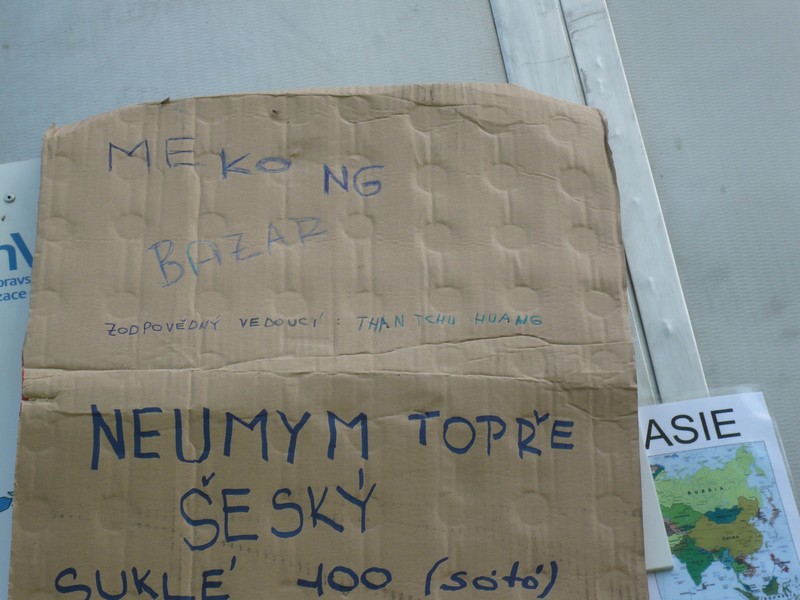 MEKONG
BAZAR
ZODPOVĚDNÝ VEDOUCÝ : THAN TCHU HUANG
NEUMYM TOPŘE
ŠESKÝ
SUKLÉ 100 (sótó)
ASIE
RUSSIA
CHINA